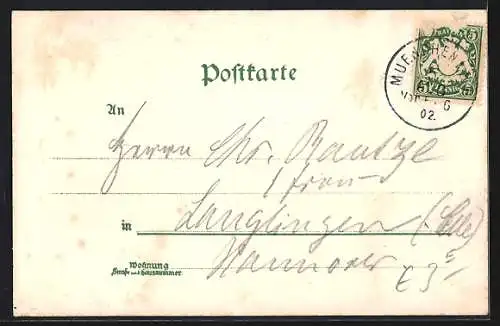 Postkarte
MUENCHEN
5 5
02.
An
Herrn Chr.
in Langlingen (Celle)
Hannover
Wohnung
Straße und Hausnummer